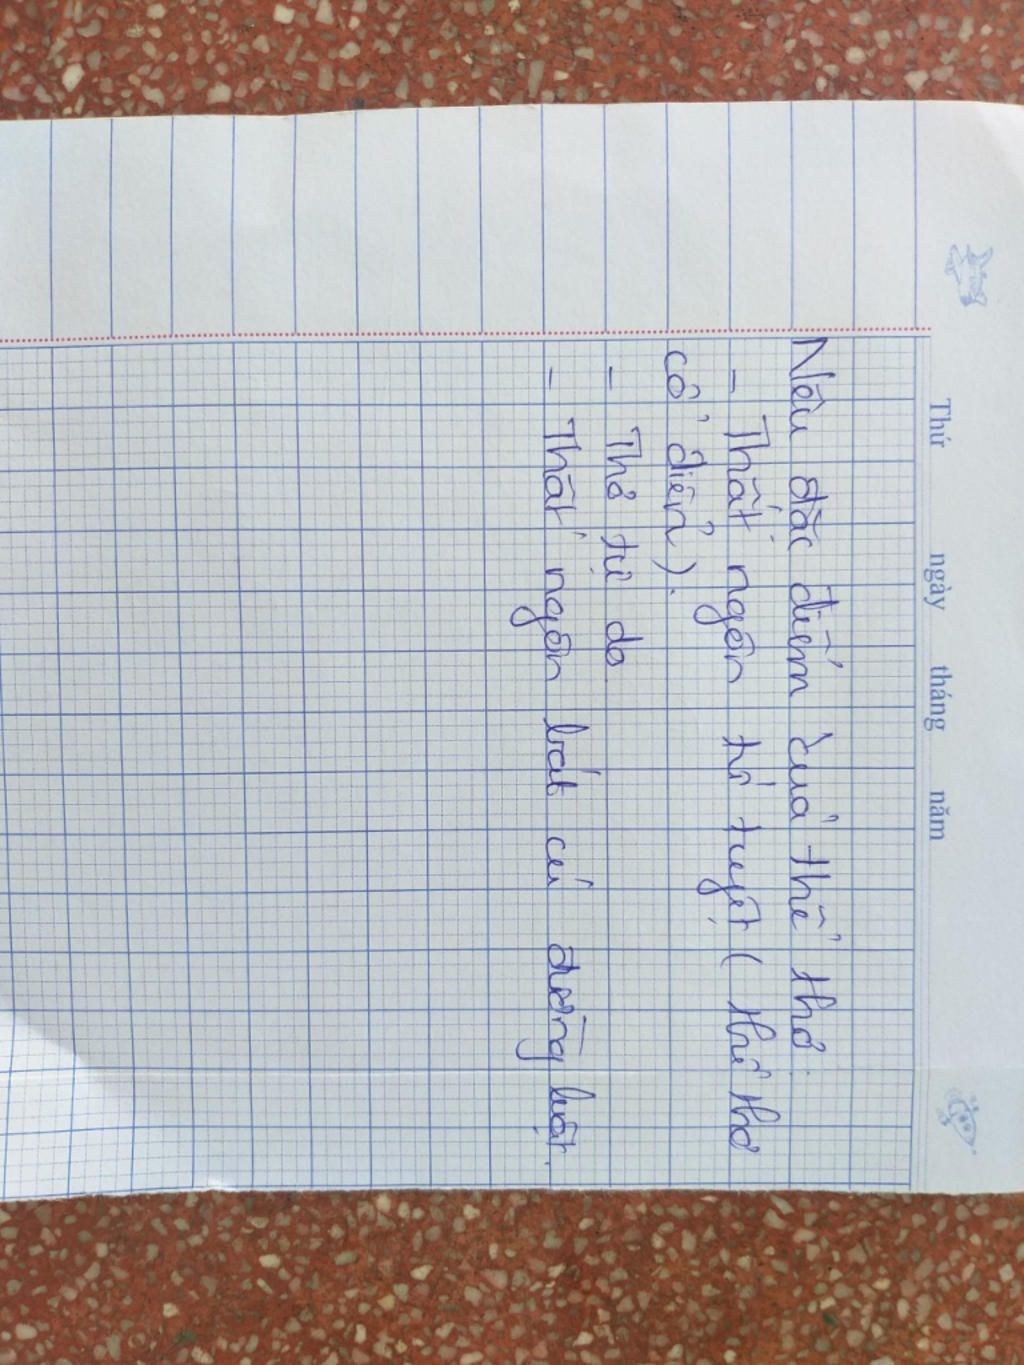 Thứ ngày tháng năm
Nêu đặc điểm của thể thơ:
- Thất ngôn tứ tuyệt ( thể thơ
cổ điển ).
- Thơ tự do
- Thất ngôn bát cú đường luật.